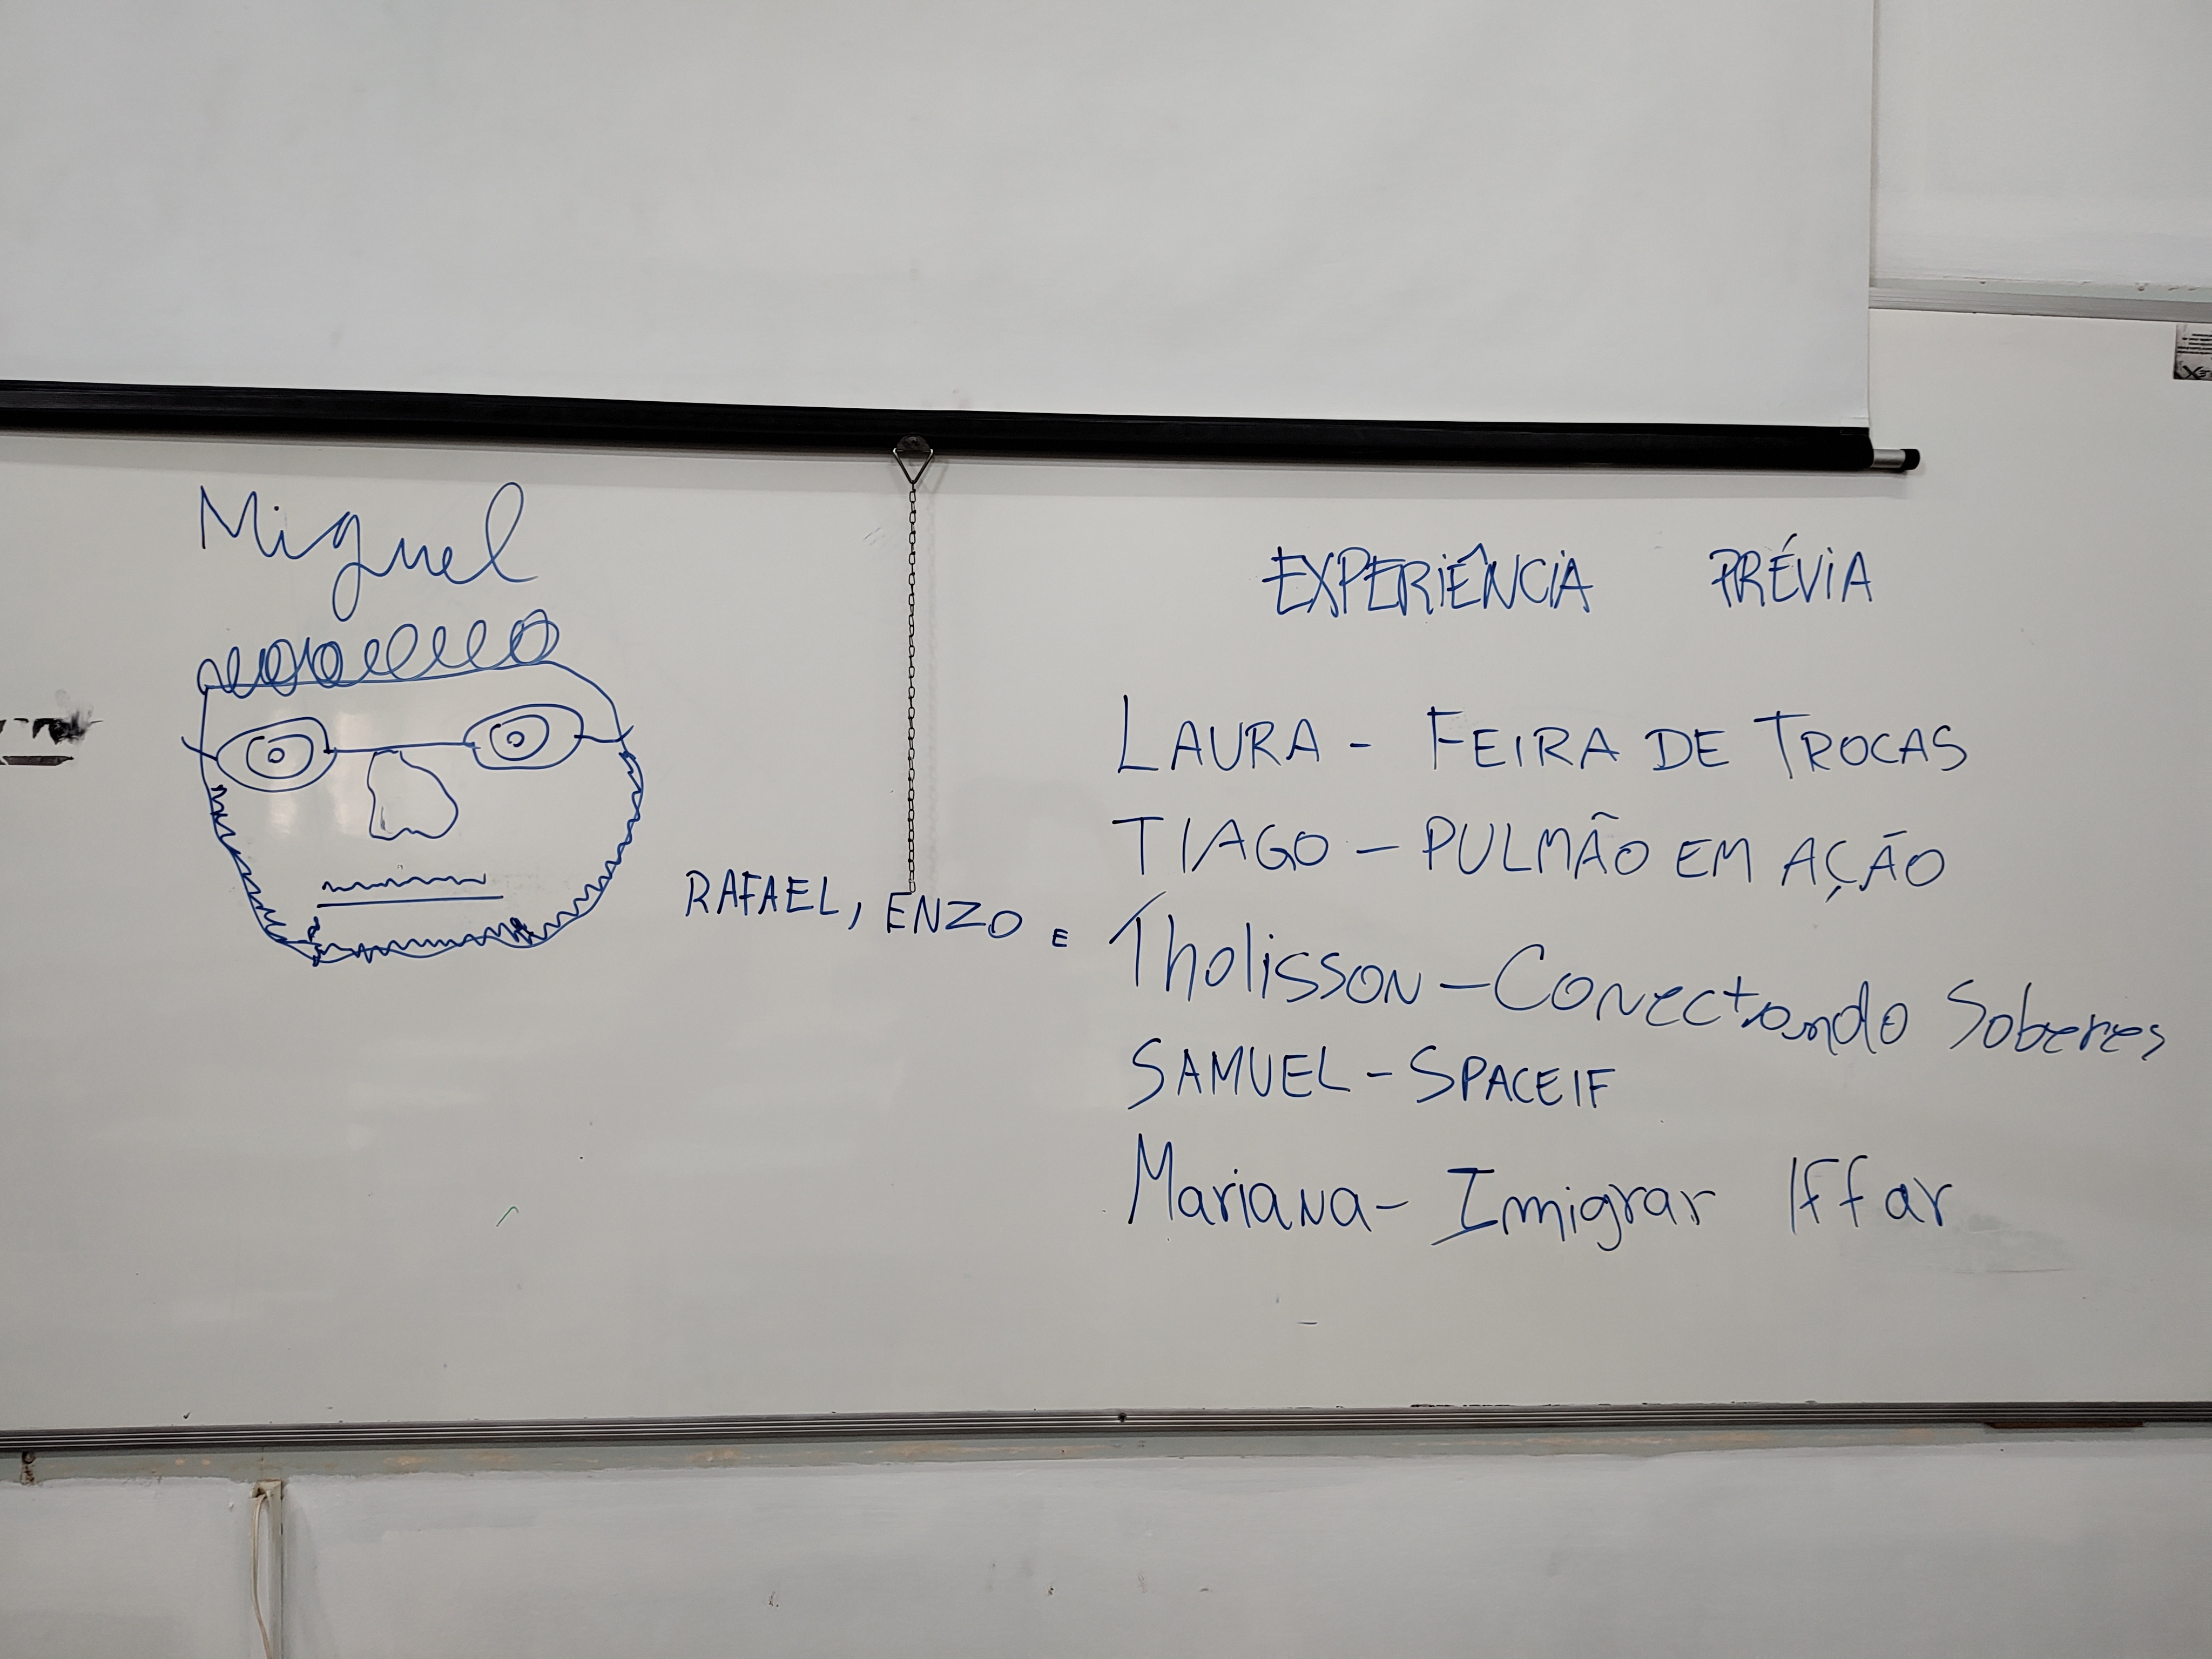 Miguel
EXPERIÊNCIA PRÉVIA
LAURA - FEIRA DE TROCAS
TIAGO - PULMÃO EM AÇÃO
RAFAEL, ENZO E Tholisson - Conectando Saberes
SAMUEL - SPACEIF
Mariana - Imigrar IFFar